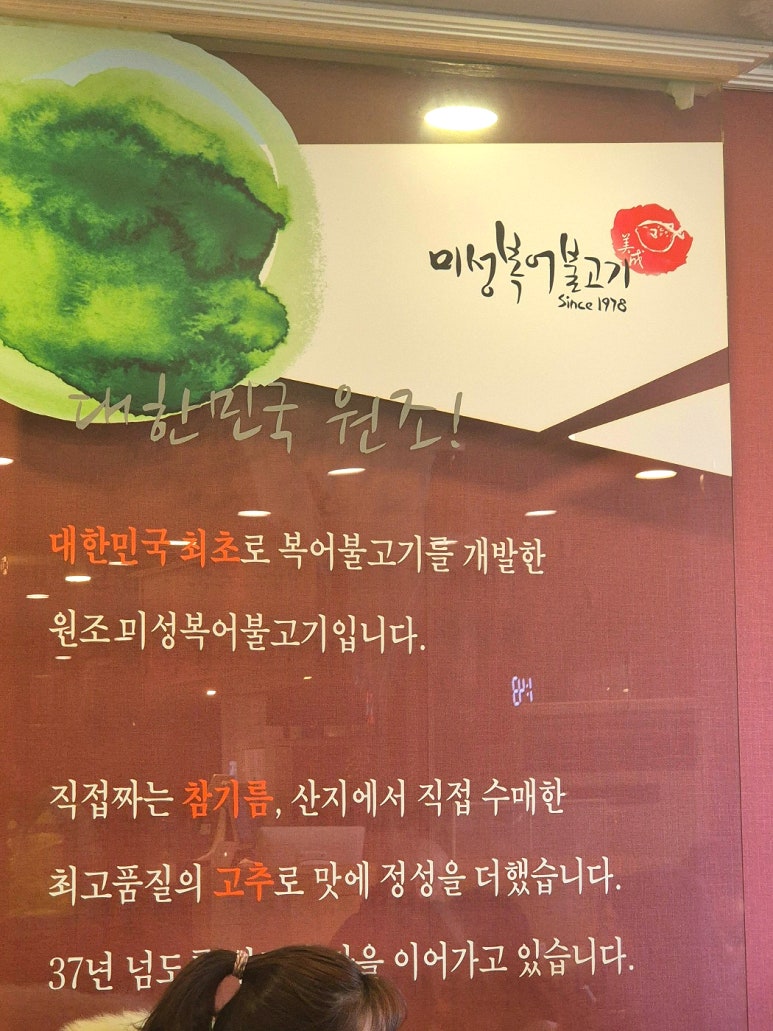 미성복어불고기
美成
Since 1978
대한민국 원조!
대한민국 최초로 복어불고기를 개발한
원조 미성복어불고기입니다.
직접짜는 참기름, 산지에서 직접 수매한
최고품질의 고추로 맛에 정성을 더했습니다.
37년 이어가고 있습니다.